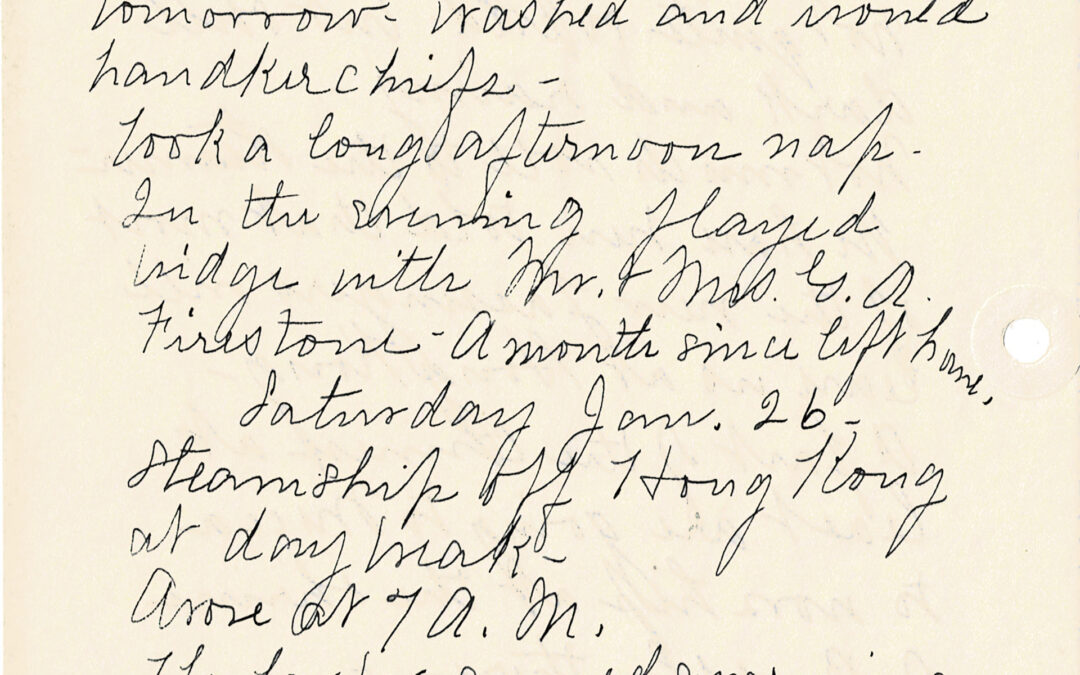 tomorrow - washed and ironed
handkerchiefs -
Took a long afternoon nap.
In the evening played
bridge with Mr. & Mrs. G. A.
Firestone - A month since left home.
Saturday Jan. 26 -
Steamship off Hong Kong
at day break -
Arose at 7 A. M.
The